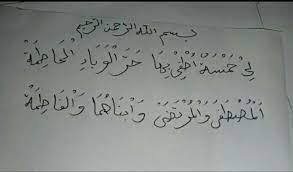 بسم الله الرحمن الرحيم
لِيْ خَمْسَةٌ اُطْفِيْ بِهَا حَرَّ الْوَبَاءِ الْحَاطِمَةْ
اَلْمُصْطَفَى وَالْمُرْتَضَى وَابْنَاهُمَا وَالْفَاطِمَةْ